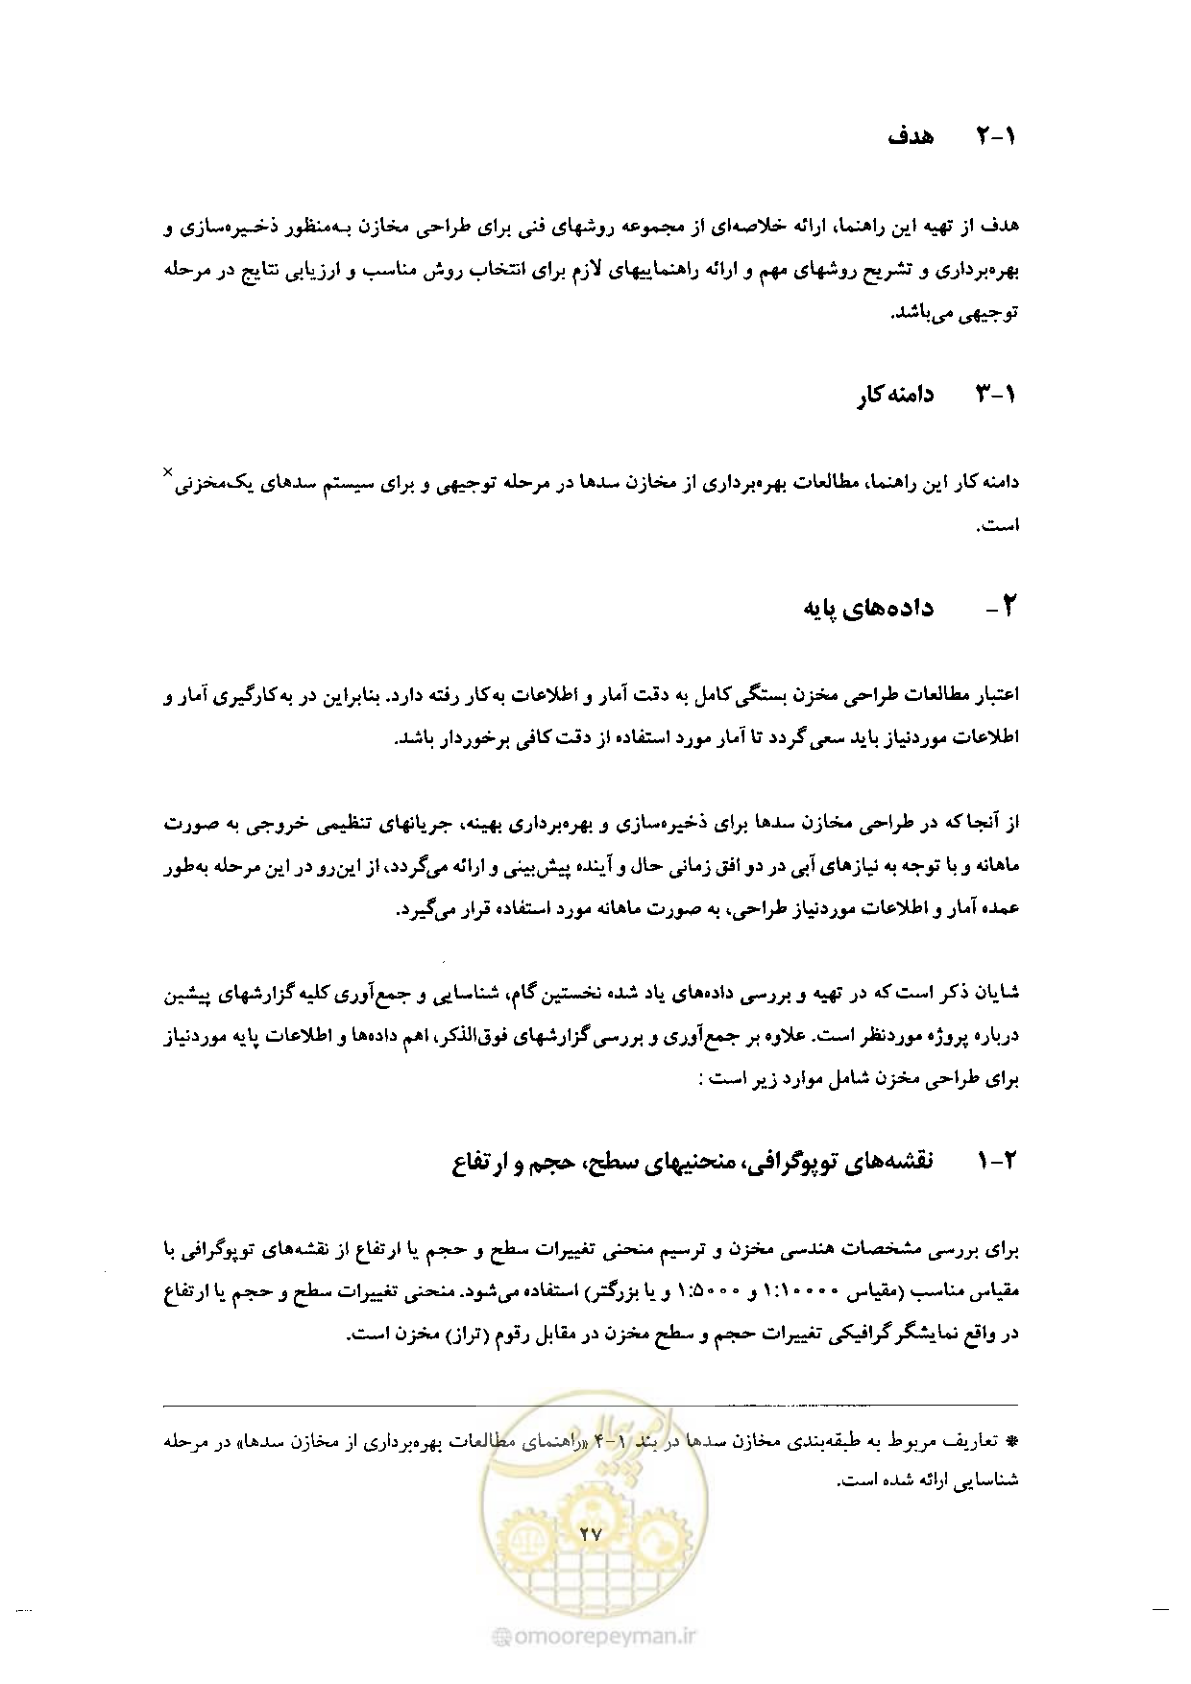 ۲-۱ هدف
هدف از تهیه این راهنما، ارائه خلاصه‌ای از مجموعه روشهای فنی برای طراحی مخازن به‌منظور ذخیره‌سازی و
بهره‌برداری و تشریح روشهای مهم و ارائه راهنماییهای لازم برای انتخاب روش مناسب و ارزیابی نتایج در مرحله
توجیهی می‌باشد.
۳-۱ دامنه کار
دامنه کار این راهنما، مطالعات بهره‌برداری از مخازن سدها در مرحله توجیهی و برای سیستم سدهای یک‌مخزنی×
است.
۲- داده‌های پایه
اعتبار مطالعات طراحی مخزن بستگی کامل به دقت آمار و اطلاعات به‌کار رفته دارد. بنابراین در به‌کارگیری آمار و
اطلاعات موردنیاز باید سعی گردد تا آمار مورد استفاده از دقت کافی برخوردار باشد.
از آنجا که در طراحی مخازن سدها برای ذخیره‌سازی و بهره‌برداری بهینه، جریانهای تنظیمی خروجی به صورت
ماهانه و با توجه به نیازهای آبی در دو افق زمانی حال و آینده پیش‌بینی و ارائه می‌گردد، از این‌رو در این مرحله به‌طور
عمده آمار و اطلاعات موردنیاز طراحی، به صورت ماهانه مورد استفاده قرار می‌گیرد.
شایان ذکر است که در تهیه و بررسی داده‌های یاد شده نخستین گام، شناسایی و جمع‌آوری کلیه گزارشهای پیشین
درباره پروژه موردنظر است. علاوه بر جمع‌آوری و بررسی گزارشهای فوق‌الذکر، اهم داده‌ها و اطلاعات پایه موردنیاز
برای طراحی مخزن شامل موارد زیر است :
۱-۲ نقشه‌های توپوگرافی، منحنیهای سطح، حجم و ارتفاع
برای بررسی مشخصات هندسی مخزن و ترسیم منحنی تغییرات سطح و حجم یا ارتفاع از نقشه‌های توپوگرافی با
مقیاس مناسب (مقیاس ۱:۱۰۰۰۰ و ۱:۵۰۰۰ و یا بزرگتر) استفاده می‌شود. منحنی تغییرات سطح و حجم یا ارتفاع
در واقع نمایشگر گرافیکی تغییرات حجم و سطح مخزن در مقابل رقوم (تراز) مخزن است.
* تعاریف مربوط به طبقه‌بندی مخازن سدها در بند ۱-۴ «راهنمای مطالعات بهره‌برداری از مخازن سدها» در مرحله
شناسایی ارائه شده است.
امور پیمان
۲۷
@omoorepeyman.ir